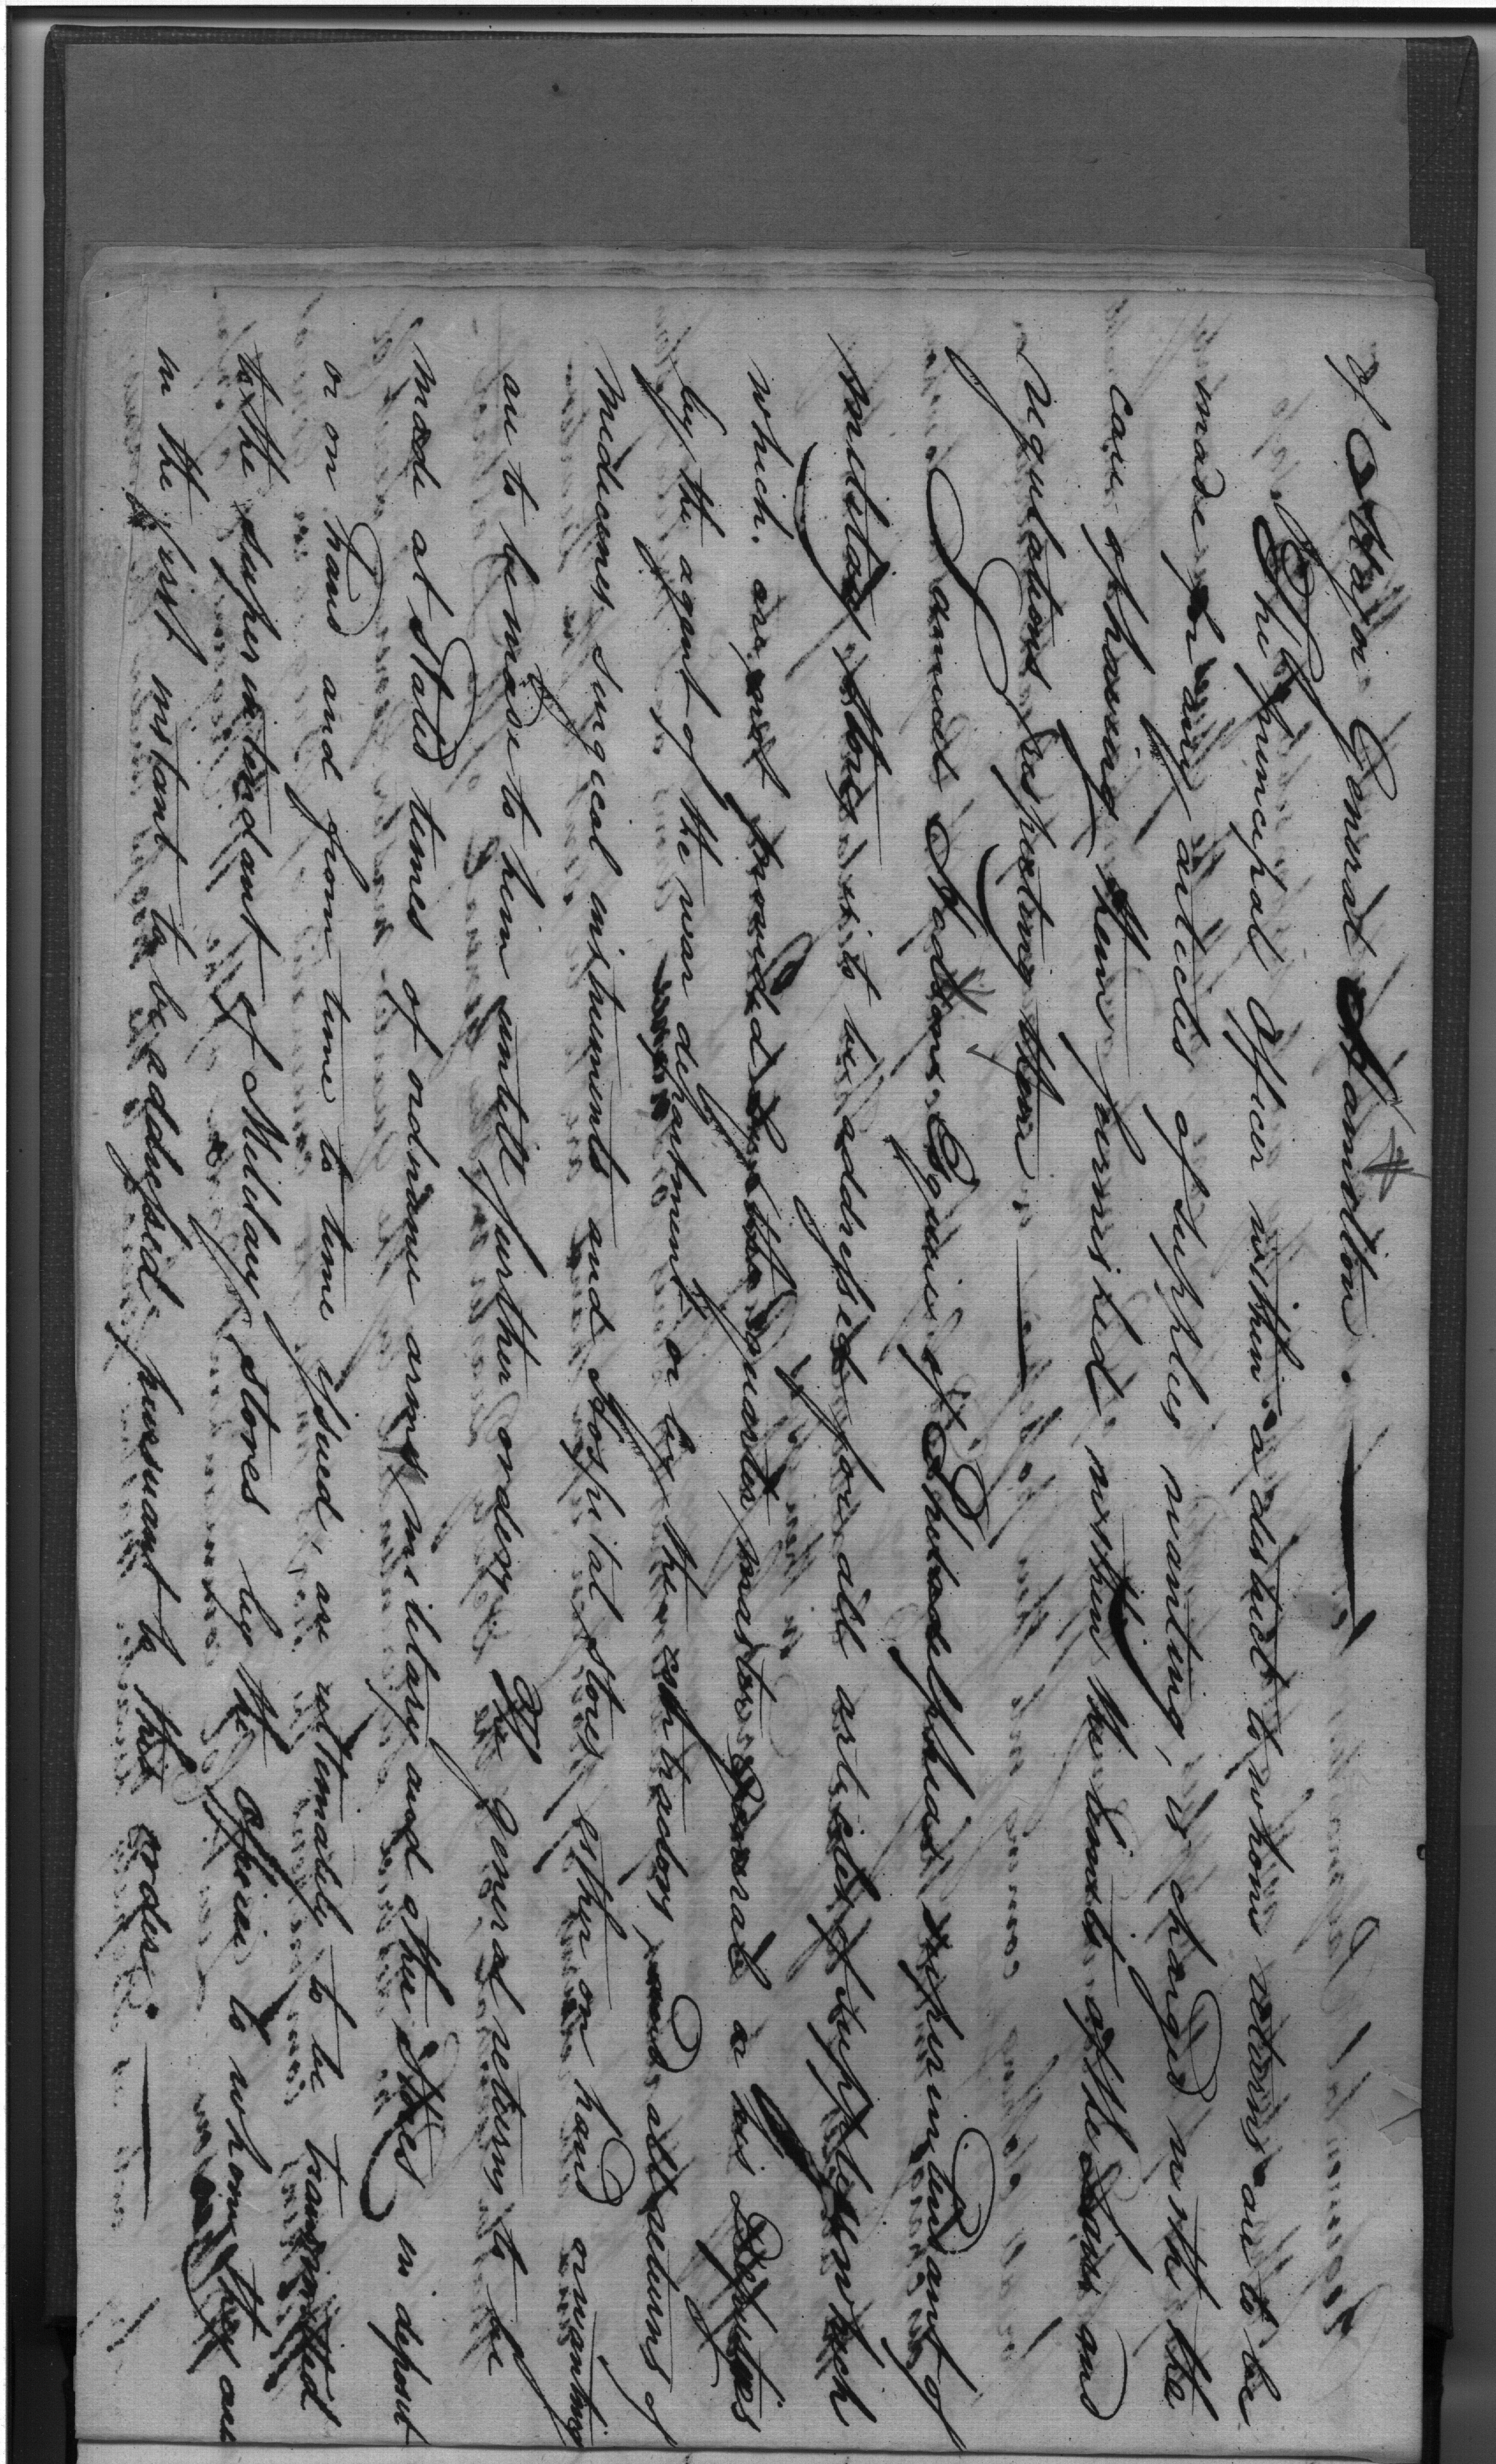 of Major General Hamilton.
The principal Officer within a district to whom returns are to be
made for any articles of supplies wanting, is charged with the
care of having them furnished within the limits of the Laws and
regulations respecting them.
Samuel Hodgdon Esquire of Philadelphia superintendant of
military stores is to be addressed for all articles of supply
which are not provided by the quarter master General or his Deputies
by the agent of the war department or by the contractors, and all returns of
medicines surgical instruments and Hospital stores either on hand or wanting
are to be made to him untill further orders. General returns to be
made at stated times of ordinance arms military and other stores in deposit
or on hand and from time to time issued, are ultimately to be transmitted
to the superintendant of Military stores by the officer to whom they are
in the first instant to be addressed pursuant to this order.